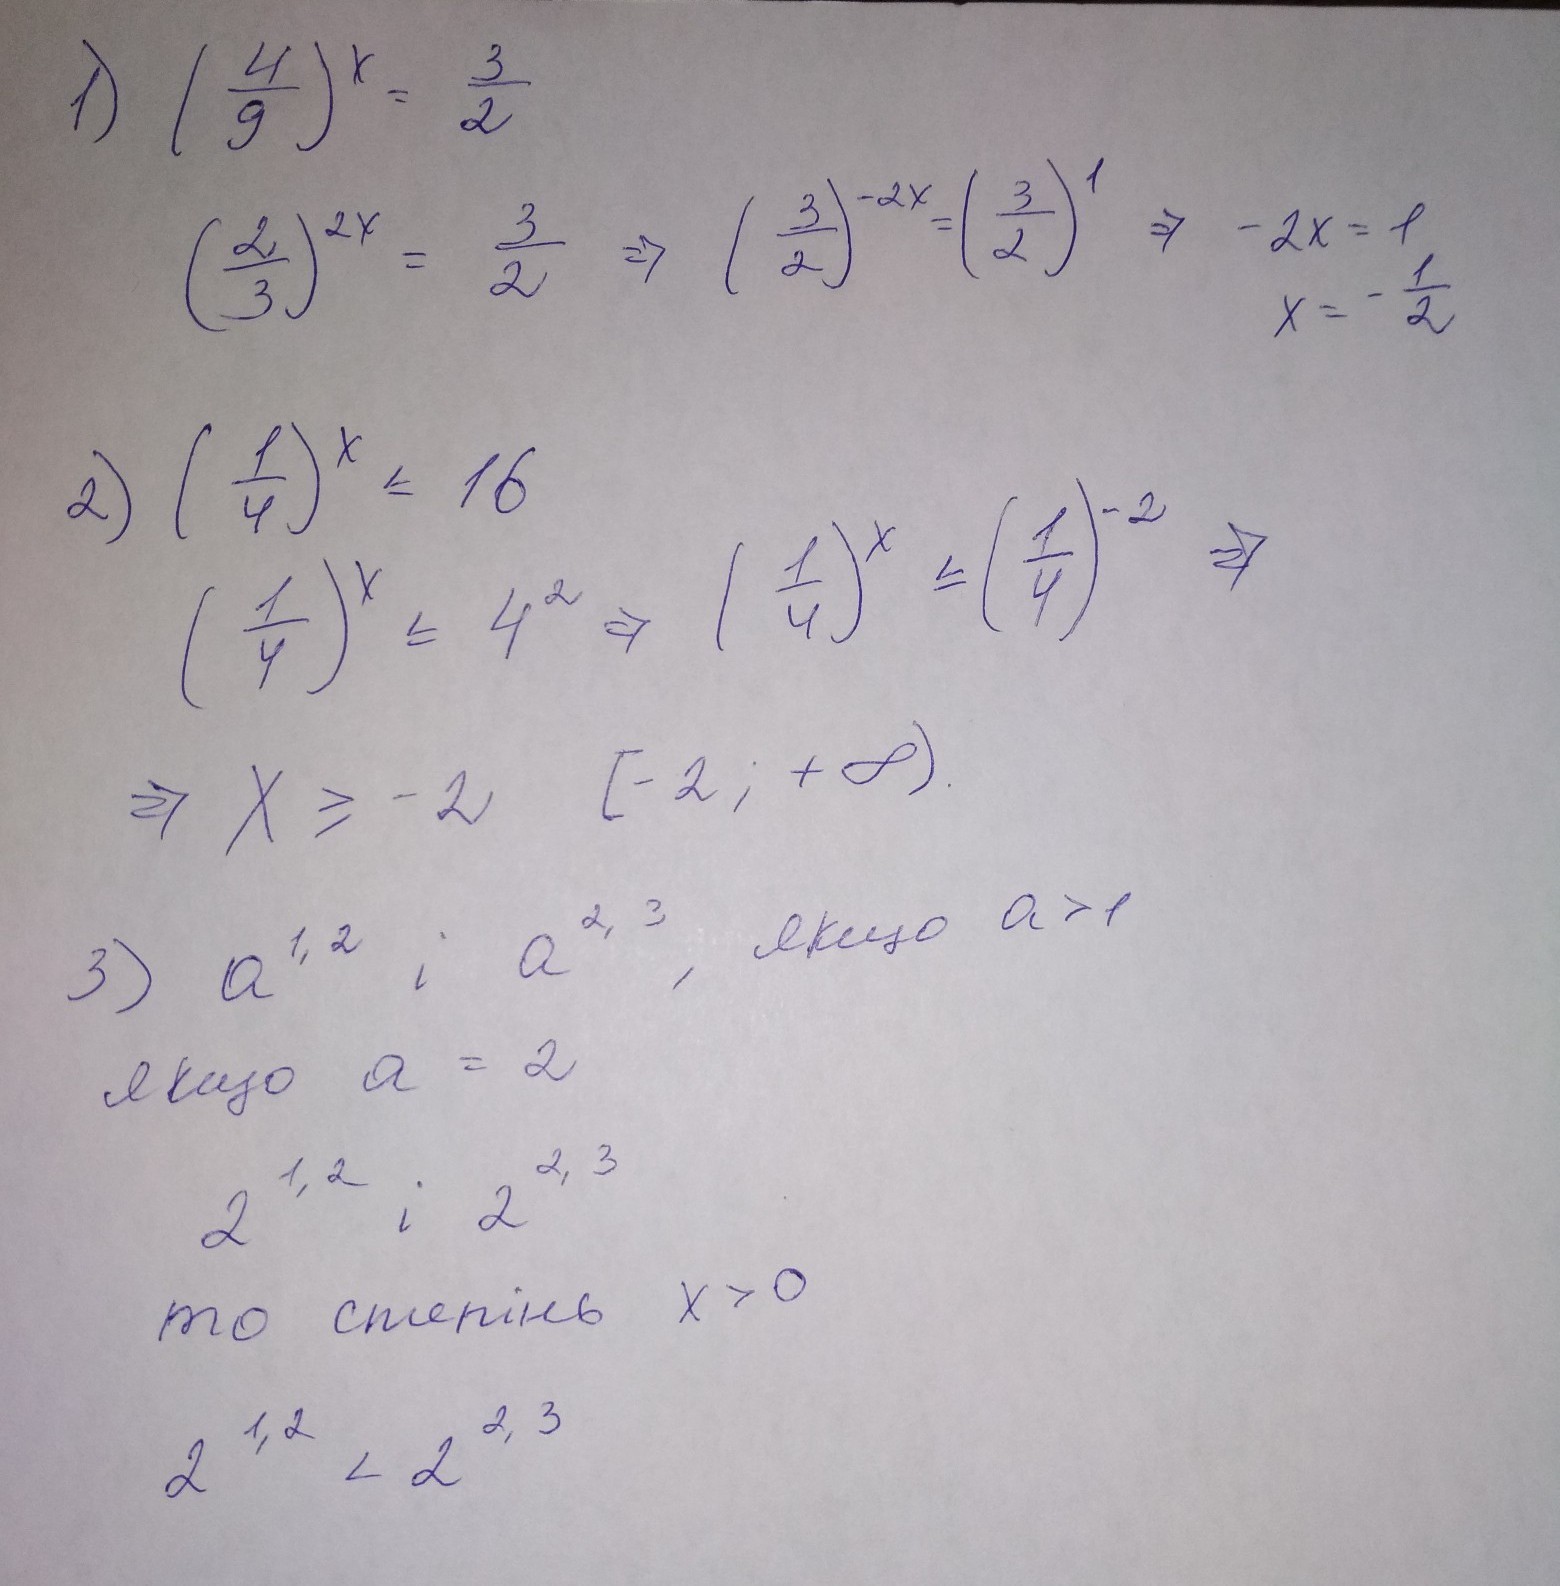 1) (4/9)^x = 3/2
(2/3)^2x = 3/2 ⇒ (3/2)^-2x = (3/2)^1 ⇒ -2x = 1
x = -1/2
2) (1/4)^x ≤ 16
(1/4)^x ≤ 4^2 ⇒ (1/4)^x ≤ (1/4)^-2 ⇒
⇒ x ≥ -2 [-2; +∞).
3) a^1,2 і a^2,3, якщо a > 1
якщо a = 2
2^1,2 і 2^2,3
то степінь x > 0
2^1,2 < 2^2,3